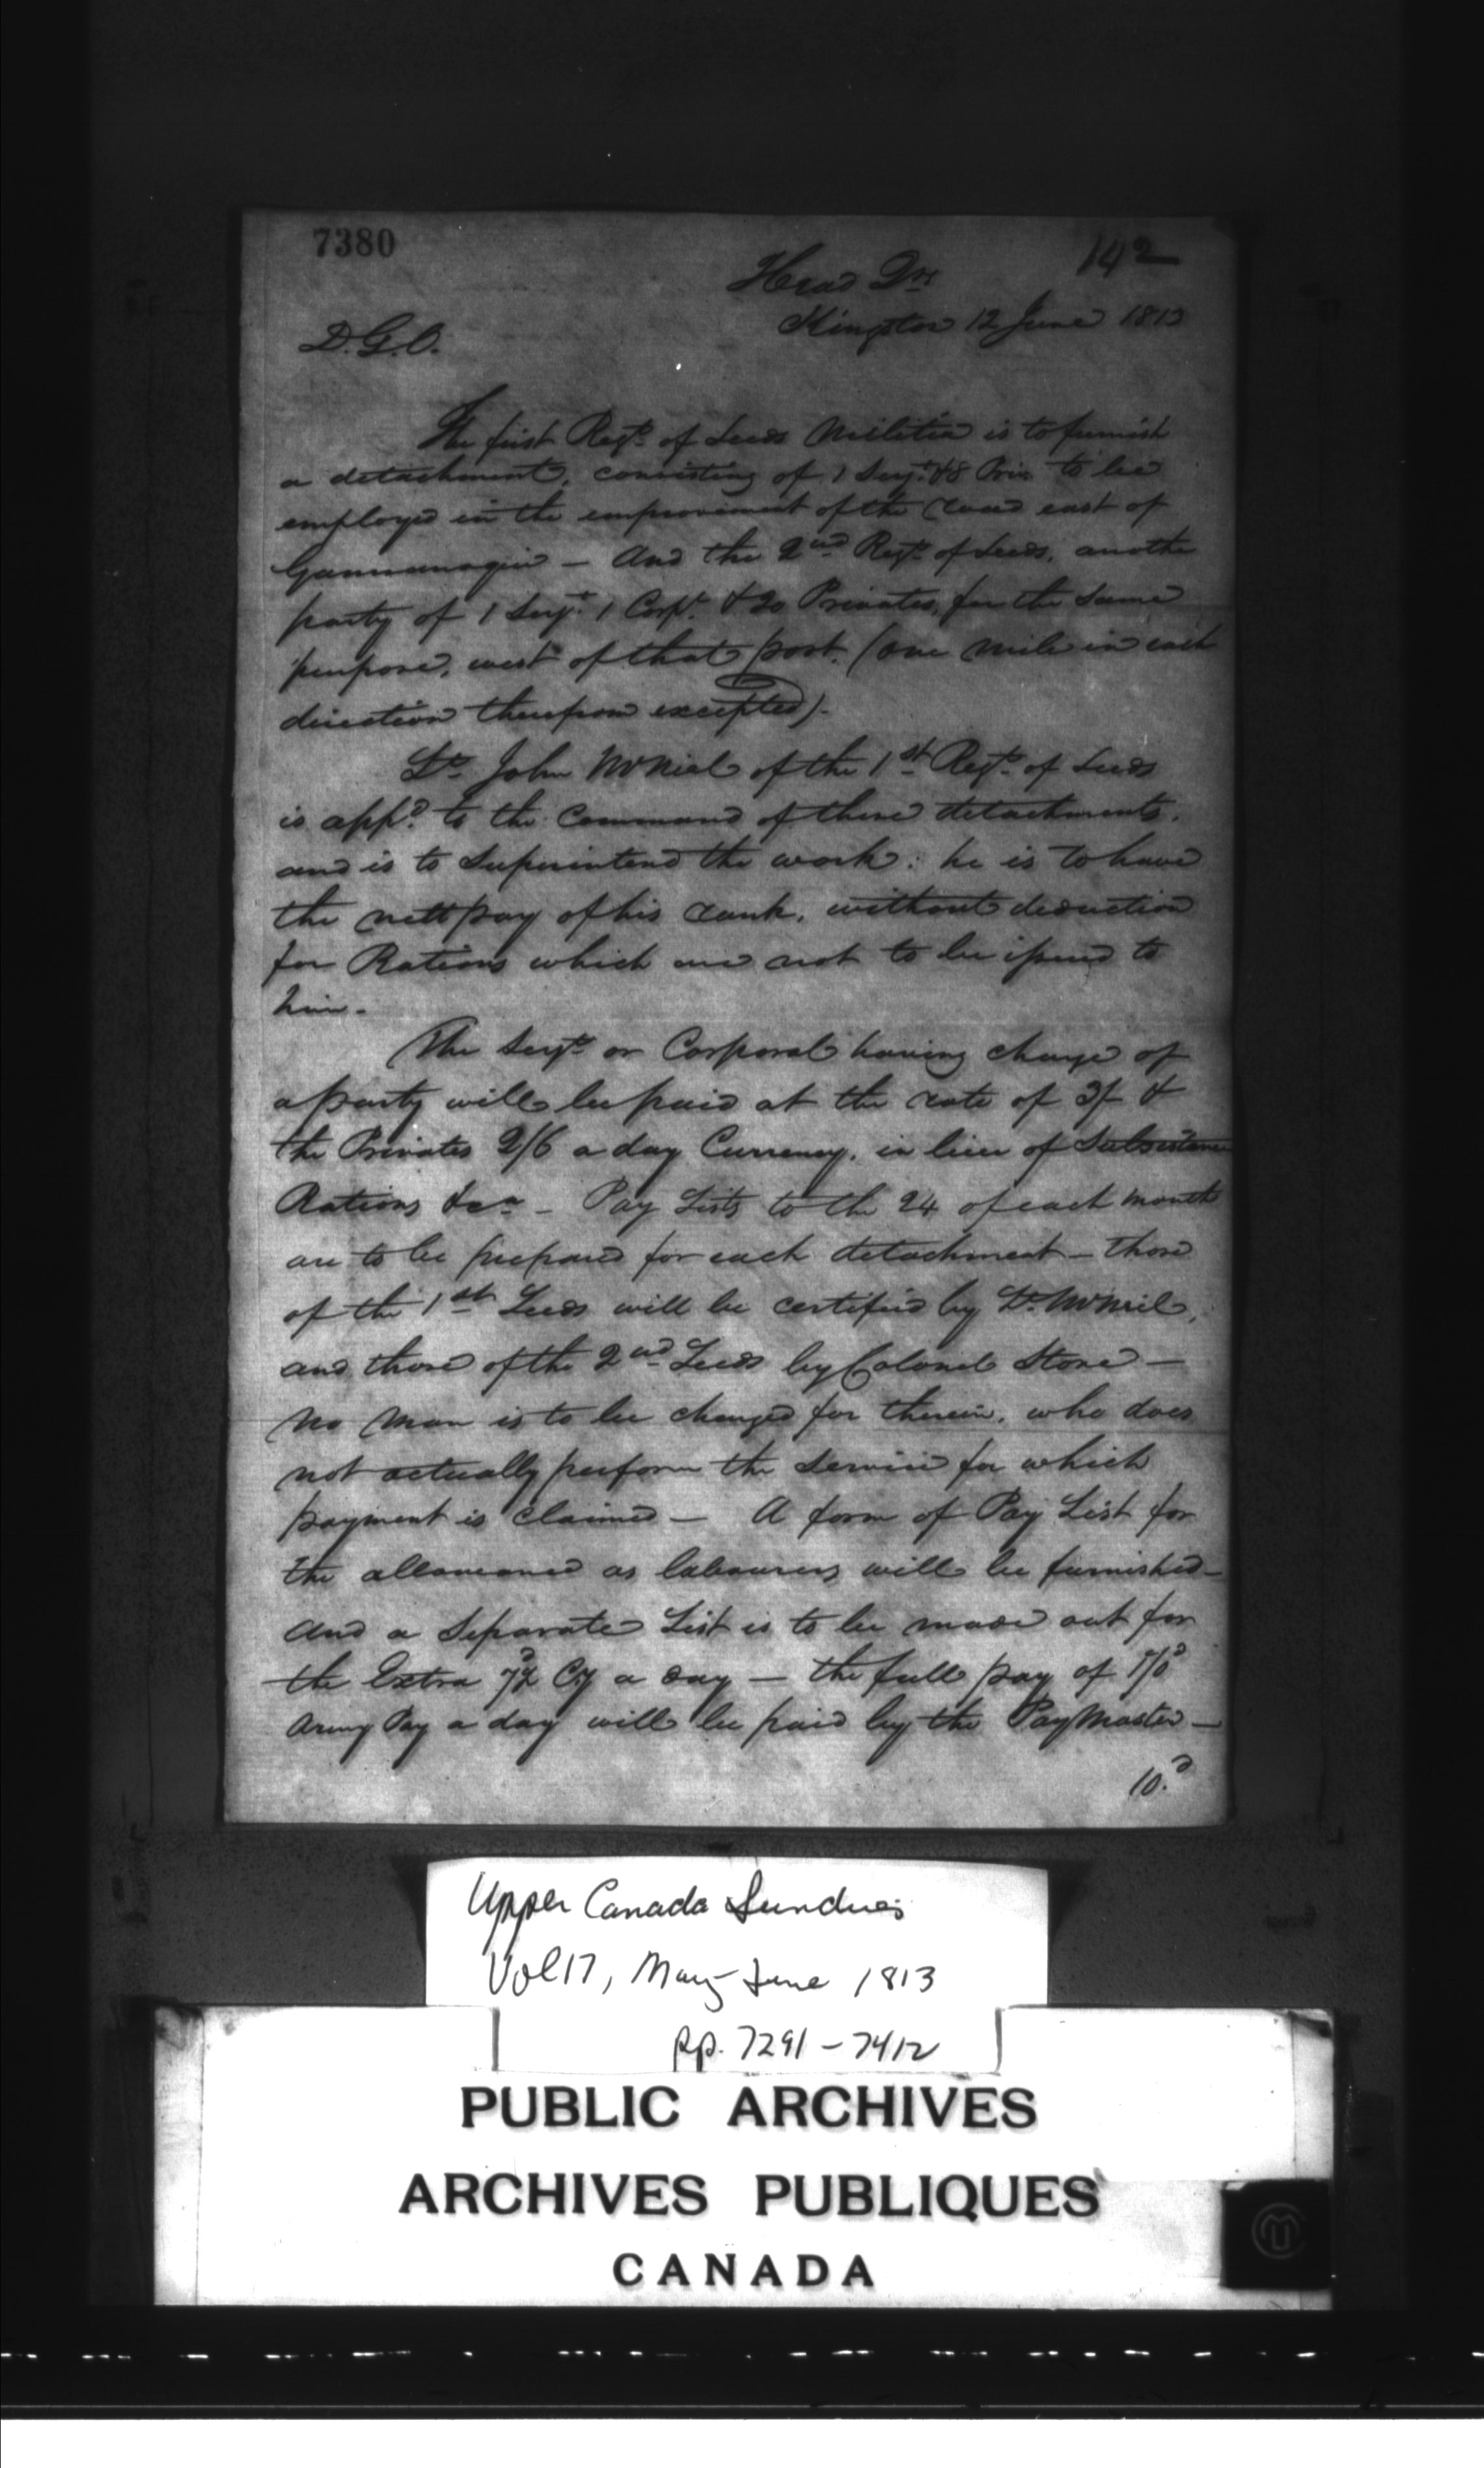 7380
142
Head Qrs
Kingston 12 June 1813
D.G.O.
The first Regt. of Leeds Militia is to furnish
a detachment, consisting of 1 Serjt. & 8 Priv. to be
employed in the improvement of the road east of
Gannanoqui — And the 2nd Regt. of Leeds, another
party of 1 Serjt. 1 Corpl. & 20 Privates, for the same
purpose, west of that post. (one mile in each
direction therefrom excepted).
Lt. John McNiel of the 1st Regt. of Leeds
is appd. to the Command of these detachments,
and is to Superintend the work: he is to have
the nett pay of his rank, without deduction
for Rations which are not to be issued to
him.
The Serjt. or Corporal having charge of
a party will be paid at the rate of 3/ &
the Privates 2/6 a day Currency, in lieu of Subsistence
Rations &ca. — Pay Lists to the 24 of each month
are to be prepared for each detachment — those
of the 1st Leeds will be certified by Lt. McNeil,
and those of the 2nd Leeds by Colonel Stone —
No man is to be charged for therein, who does
not actually perform the service for which
payment is claimed — A form of Pay List for
the allowance as labourers will be furnished —
And a Separate List is to be made out for
the Extra Cy a day — the full pay of
Army Pay a day will be paid by the PayMaster —
10.d
Upper Canada Sundries
Vol 17, May-June 1813
pp. 7291 - 7412
PUBLIC ARCHIVES
ARCHIVES PUBLIQUES
CANADA